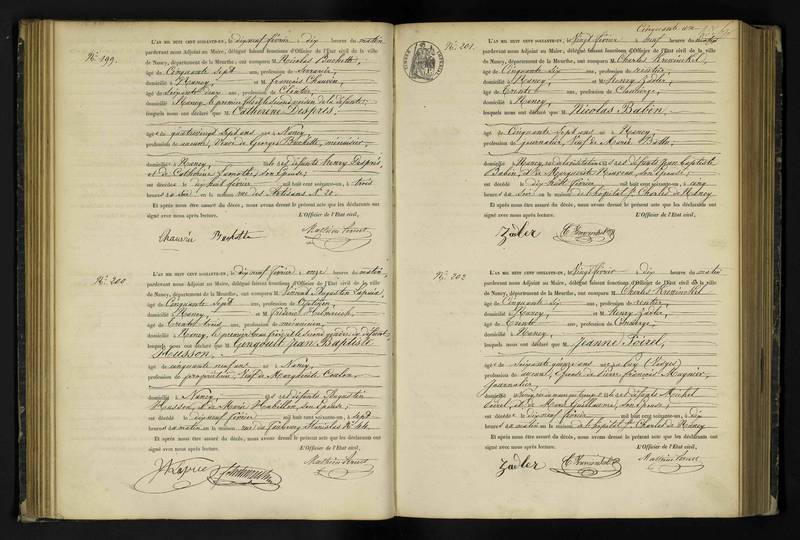 N°. 199.
L'AN MIL HUIT CENT SOIXANTE-UN, le dix neuf février dix heures du matin
pardevant nous Adjoint au Maire, délégué faisant fonctions d'Officier de l'Etat civil de la ville
de Nancy, département de la Meurthe, ont comparu M. Nicolas Bachette,
âgé de Cinquante sept ans, profession de
domicilié à Nancy, et M. François Chauvin,
âgé de ans, profession de
domicilié Nancy le premier
lesquels nous ont déclaré que M. Catherine Desprès,
âgé de quatrevingt sept ans né à Nancy
profession de Veuve de Georges Bachette, menuisier,
domicilié à Nancy, défunts Henry Desprès,
et de Catherine son épouse;
est décédé le dix huit février mil huit cent soixante-un, à trois
heures du soir en la maison rue des Artisans N° 20.
Et après nous être assuré du décès, nous avons dressé le présent acte que les déclarants ont
signé avec nous après lecture. L'Officier de l'Etat civil,
Chauvin Bachette
N°. 200
L'AN MIL HUIT CENT SOIXANTE-UN, le dix neuf février onze heures du matin,
pardevant nous Adjoint au Maire, délégué faisant fonctions d'Officier de l'Etat civil de la ville
de Nancy, département de la Meurthe, ont comparu M. Augustin
âgé de Cinquante sept ans, profession de
domicilié à Nancy, et M. Frédéric
âgé de trente trois ans, profession de mécanicien,
domicilié à Nancy, le premier
lesquels nous ont déclaré que M. Gengoult Jean Baptiste
Husson,
âgé de cinquante neuf ans né à Nancy,
profession de propriétaire, Veuf de Marguerite
domicilié à Nancy, défunts Augustin
Husson, et de Marie son épouse;
est décédé le dix neuf février mil huit cent soixante-un, à sept
heures du matin en la maison rue du faubourg Stanislas N° 44.
Et après nous être assuré du décès, nous avons dressé le présent acte que les déclarants ont
signé avec nous après lecture. L'Officier de l'Etat civil,
Cinquante un
N°. 201.
L'AN MIL HUIT CENT SOIXANTE-UN, le Vingt février à neuf heures du matin
pardevant nous Adjoint au Maire, délégué faisant fonctions d'Officier de l'Etat civil de la ville
de Nancy, département de la Meurthe, ont comparu M. Charles
âgé de Cinquante six ans, profession de rentier,
domicilié à Nancy, et M. Henry Zadler,
âgé de trente ans, profession de Concierge,
domicilié à Nancy,
lesquels nous ont déclaré que M. Nicolas Babin,
âgé de Cinquante sept ans né à Nancy,
profession de journalier, Veuf de Marie
domicilié à Nancy, défunts Jean Baptiste
Babin, et de Marguerite son épouse;
est décédé le dix huit février mil huit cent soixante-un, à cinq
heures du soir en la maison de l'hôpital St. Charles de Nancy
Et après nous être assuré du décès, nous avons dressé le présent acte que les déclarants ont
signé avec nous après lecture. L'Officier de l'Etat civil,
Zadler
N°. 202
L'AN MIL HUIT CENT SOIXANTE-UN, le Vingt février dix heures du matin
pardevant nous Adjoint au Maire, délégué faisant fonctions d'Officier de l'Etat civil de la ville
de Nancy, département de la Meurthe, ont comparu M. Charles
âgé de Cinquante six ans, profession de rentier,
domicilié à Nancy, et M. Henry Zadler,
âgé de trente ans, profession de Concierge,
domicilié à Nancy,
lesquels nous ont déclaré que M. Jeanne Poirel,
âgé de Soixante quinze ans né à (Vosges)
profession de Epouse de Pierre François
journalier,
domicilié à Nancy, défunts Michel
Poirel, et de Marie Guillaume, son épouse
est décédé le dix neuf février mil huit cent soixante-un, à dix
heures du matin en la maison de l'hôpital St. Charles de Nancy
Et après nous être assuré du décès, nous avons dressé le présent acte que les déclarants ont
signé avec nous après lecture. L'Officier de l'Etat civil,
Zadler